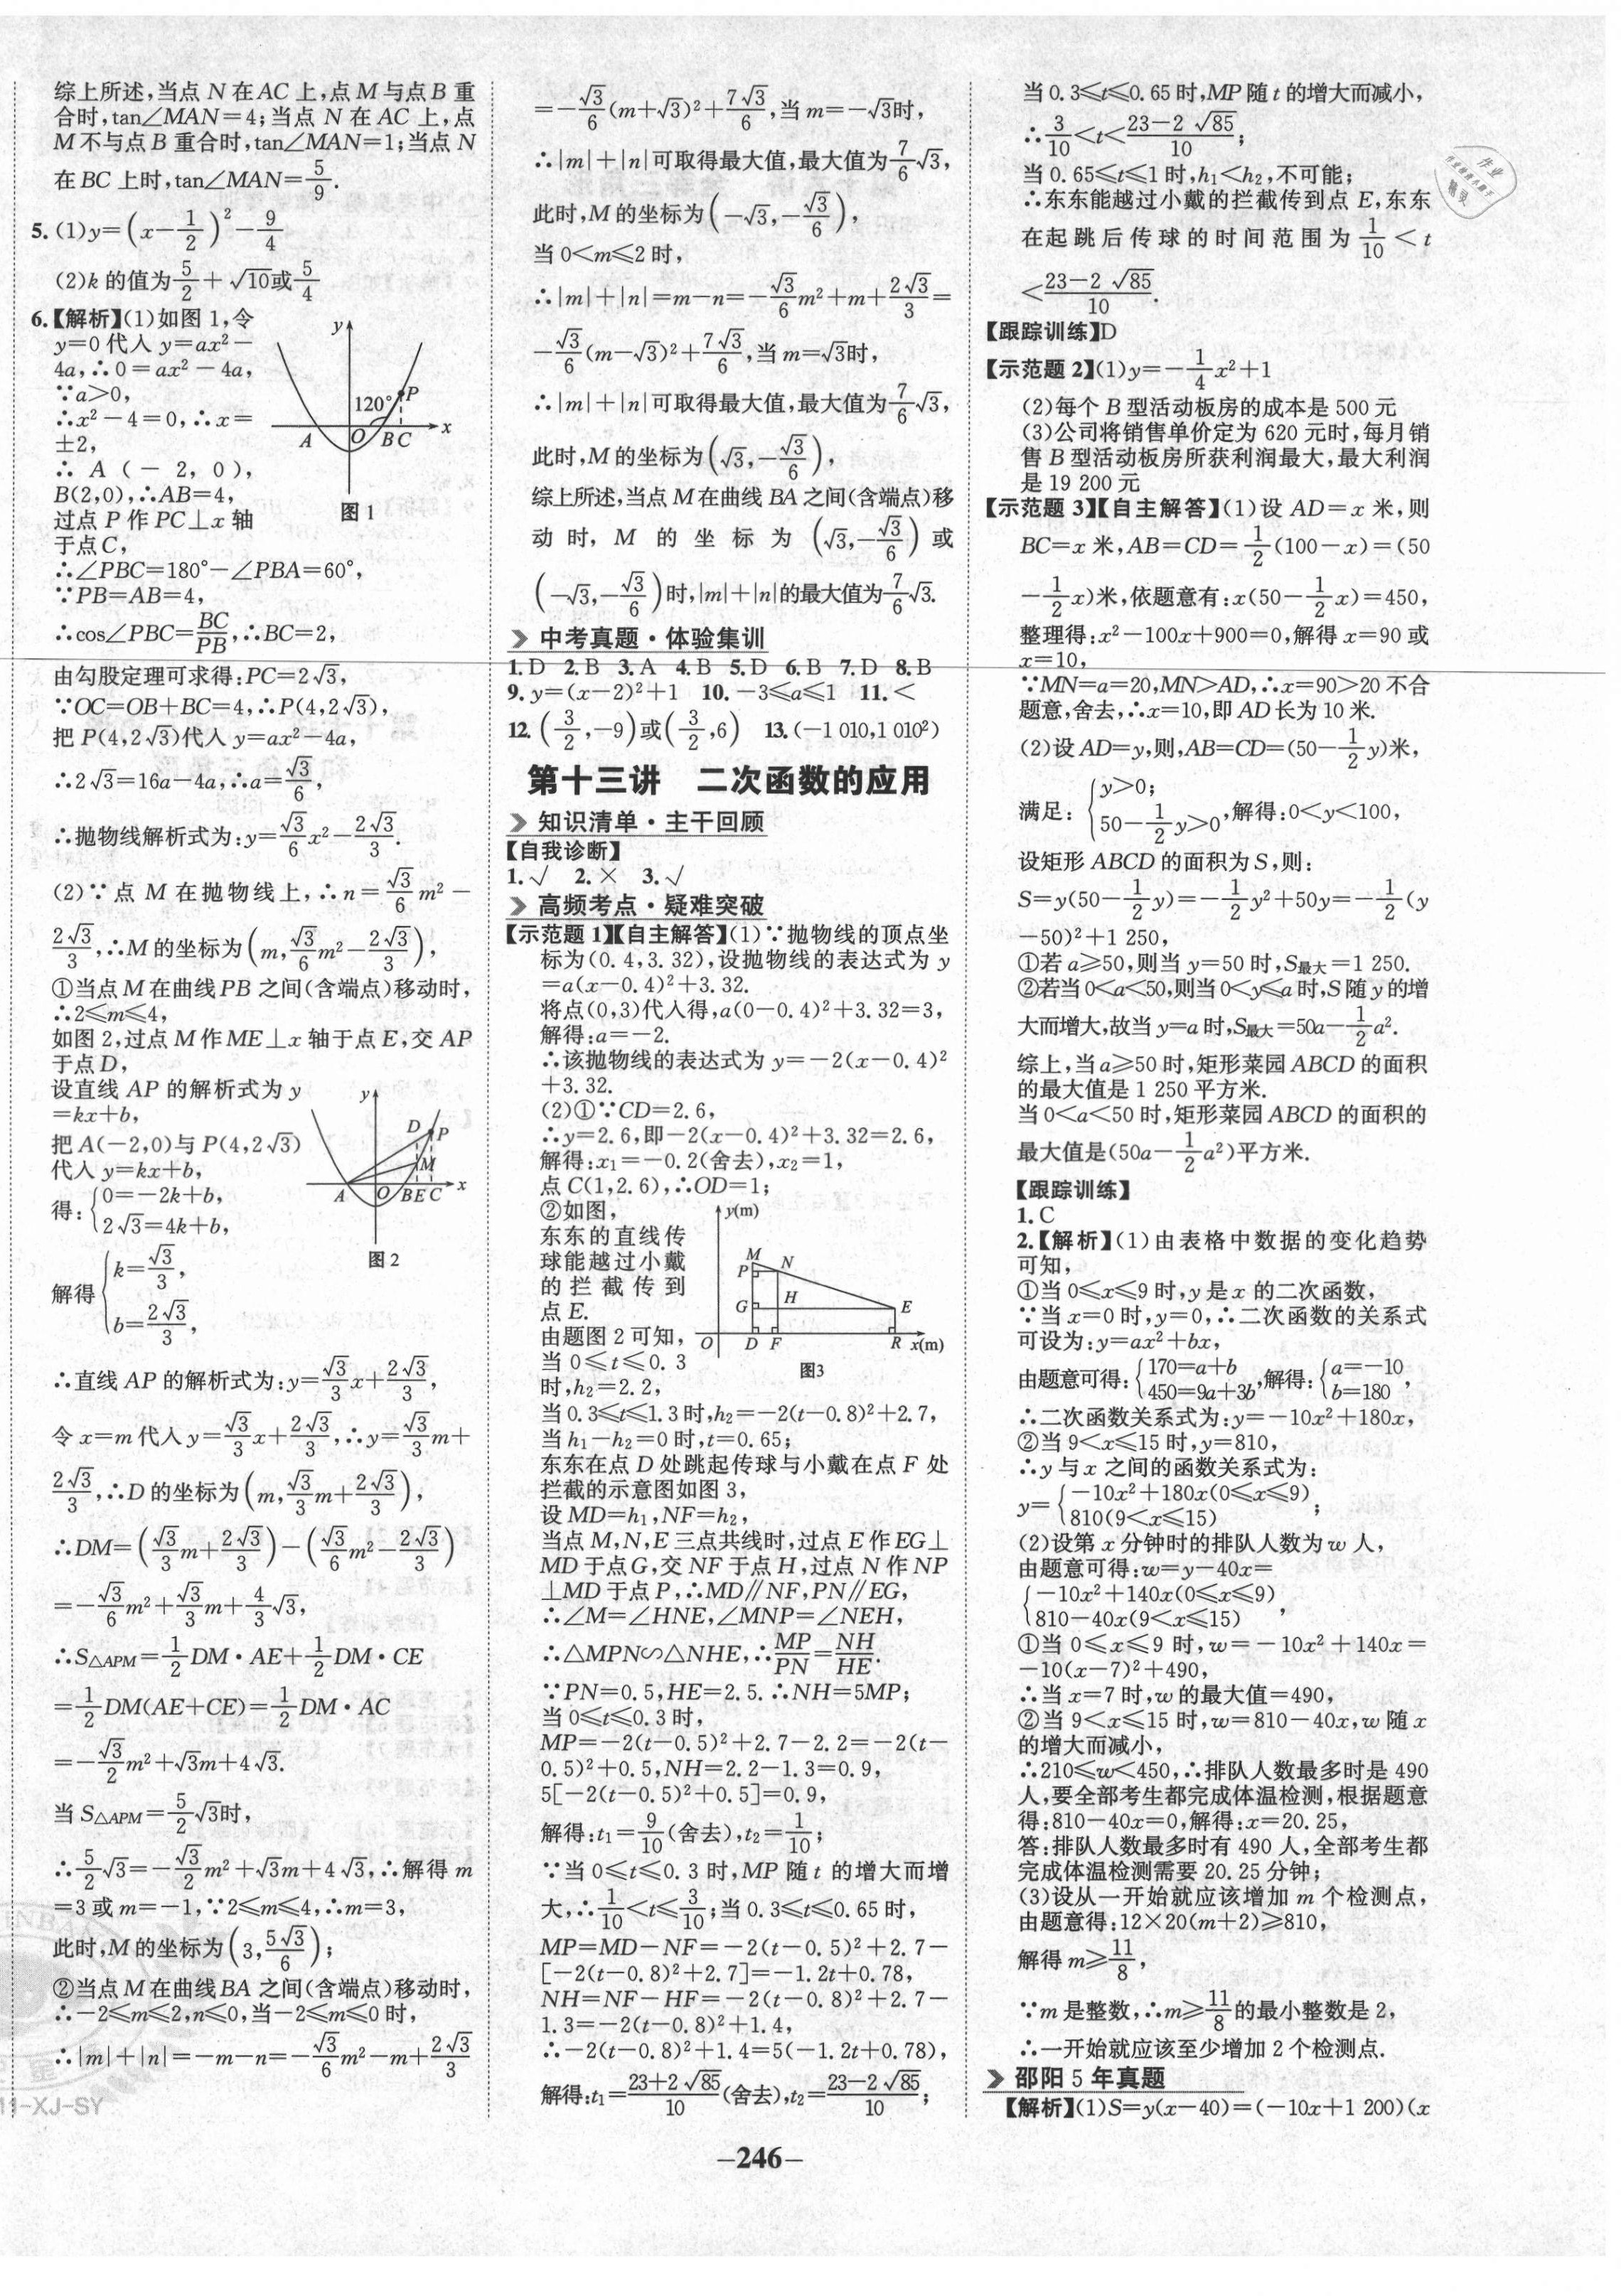 综上所述,当点 N 在AC 上,点 M 与点B 重
合时,tan∠MAN=4;当点 N 在 AC 上,点
M 不与点 B 重合时,tan∠MAN=1;当点 N
在 BC 上时,tan∠MAN=5/9.
5. (1)y=(x-1/2)²-9/4
(2)k 的值为5/2+√10或5/4
6.【解析】(1)如图 1,令
y=0 代入 y=ax²-
4a,∴0=ax²-4a,
∵a>0,
∴x²-4=0,∴x=
±2,
∴ A (-2, 0),
B(2,0),∴AB=4,
过点 P 作 PC⊥x 轴
于点C,
y
120°
P
A
O
B
C
x
图 1
∴∠PBC=180°-∠PBA=60°,
∵PB=AB=4,
∴cos∠PBC=BC/PB,∴BC=2,
由勾股定理可求得:PC=2√3,
∵OC=OB+BC=4,∴P(4,2√3),
把 P(4,2√3)代入 y=ax²-4a,
∴2√3=16a-4a,∴a=√3/6,
∴抛物线解析式为:y=√3/6x²-2√3/3.
(2)∵点 M 在抛物线上,∴n=√3/6m²-
2√3/3,∴M 的坐标为(m,√3/6m²-2√3/3),
①当点 M 在曲线PB 之间(含端点)移动时,
∴2≤m≤4,
如图 2,过点 M 作ME⊥x 轴于点 E,交 AP
于点 D,
设直线 AP 的解析式为 y
=kx+b,
把 A(-2,0)与 P(4,2√3)
代入 y=kx+b,
得:{0=-2k+b,
2√3=4k+b,
解得{k=√3/3,
b=2√3/3,
y
D
P
M
A
O
B
E
C
x
图 2
∴直线 AP 的解析式为:y=√3/3x+2√3/3,
令 x=m 代入 y=√3/3x+2√3/3,∴y=√3/3m+
2√3/3,∴D 的坐标为(m,√3/3m+2√3/3),
∴DM=(√3/3m+2√3/3)-(√3/6m²-2√3/3)
=-√3/6m²+√3/3m+4/3√3,
∴S△APM=1/2DM·AE+1/2DM·CE
=1/2DM(AE+CE)=1/2DM·AC
=-√3/2m²+√3m+4√3.
当 S△APM=5/2√3时,
∴5/2√3=-√3/2m²+√3m+4√3,∴解得 m
=3 或 m=-1,∵2≤m≤4,∴m=3,
此时,M 的坐标为(3,5√3/6);
②当点 M 在曲线BA 之间(含端点)移动时,
∴-2≤m≤2,n≤0,当-2≤m≤0 时,
∴|m|+|n|=-m-n=-√3/6m²-m+2√3/3
11-XJ-SY
=-√3/6(m+√3)²+7√3/6,当 m=-√3时,
∴|m|+|n|可取得最大值,最大值为7/6√3,
此时,M 的坐标为(-√3,-√3/6),
当 0<m≤2 时,
∴|m|+|n|=m-n=-√3/6m²+m+2√3/3=
-√3/6(m-√3)²+7√3/6,当 m=√3时,
∴|m|+|n|可取得最大值,最大值为7/6√3,
此时,M 的坐标为(√3,-√3/6),
综上所述,当点 M 在曲线 BA 之间(含端点)移
动时, M 的坐标为(√3,-√3/6)或
(-√3,-√3/6)时,|m|+|n|的最大值为7/6√3.
中考真题·体验集训
1. D 2. B 3. A 4. B 5. D 6. B 7. D 8. B
9. y=(x-2)²+1 10. -3≤a≤1 11. <
12. (3/2,-9)或(3/2,6) 13. (-1 010,1 010²)
第十三讲 二次函数的应用
知识清单·主干回顾
【自我诊断】
1. √ 2. × 3. √
高频考点·疑难突破
【示范题 1】【自主解答】(1)∵抛物线的顶点坐
标为(0.4,3.32),设抛物线的表达式为 y
=a(x-0.4)²+3.32.
将点(0,3)代入得,a(0-0.4)²+3.32=3,
解得:a=-2.
∴该抛物线的表达式为 y=-2(x-0.4)²
+3.32.
(2)①∵CD=2.6,
∴y=2.6,即-2(x-0.4)²+3.32=2.6,
解得:x₁=-0.2(舍去),x₂=1,
点 C(1,2.6),∴OD=1;
②如图,
东东的直线传
球能越过小戴
的拦截传到
点 E.
由题图 2 可知,
当 0≤t≤0.3
时,h₂=2.2,
y(m)
M
N
P
H
G
E
O
D
F
R
x(m)
图3
当 0.3≤t≤1.3 时,h₂=-2(t-0.8)²+2.7,
当 h₁-h₂=0 时,t=0.65;
东东在点 D 处跳起传球与小戴在点 F 处
拦截的示意图如图 3,
设 MD=h₁,NF=h₂,
当点 M,N,E 三点共线时,过点 E 作 EG⊥
MD 于点G,交 NF 于点 H,过点 N 作 NP
⊥MD 于点 P,∴MD∥NF,PN∥EG,
∴∠M=∠HNE,∠MNP=∠NEH,
∴△MPN∽△NHE,∴MP/PN=NH/HE.
∵PN=0.5,HE=2.5.∴NH=5MP;
当 0≤t≤0.3 时,
MP=-2(t-0.5)²+2.7-2.2=-2(t-
0.5)²+0.5,NH=2.2-1.3=0.9,
5[-2(t-0.5)²+0.5]=0.9,
解得:t₁=9/10(舍去),t₂=1/10;
∵当 0≤t≤0.3 时,MP 随 t 的增大而增
大,∴1/10<t≤3/10;当 0.3≤t≤0.65 时,
MP=MD-NF=-2(t-0.5)²+2.7-
[-2(t-0.8)²+2.7]=-1.2t+0.78,
NH=NF-HF=-2(t-0.8)²+2.7-
1.3=-2(t-0.8)²+1.4,
∴-2(t-0.8)²+1.4=5(-1.2t+0.78),
解得:t₁=23+2√85/10(舍去),t₂=23-2√85/10;
当 0.3≤t≤0.65 时,MP 随 t 的增大而减小,
∴3/10<t<23-2√85/10;
当 0.65≤t≤1 时,h₁<h₂,不可能;
∴东东能越过小戴的拦截传到点 E,东东
在起跳后传球的时间范围为1/10<t
<23-2√85/10.
【跟踪训练】D
【示范题 2】(1)y=-1/4x²+1
(2)每个 B 型活动板房的成本是 500 元
(3)公司将销售单价定为 620 元时,每月销
售 B 型活动板房所获利润最大,最大利润
是 19 200 元
【示范题 3】【自主解答】(1)设 AD=x 米,则
BC=x 米,AB=CD=1/2(100-x)=(50
-1/2x)米,依题意有:x(50-1/2x)=450,
整理得:x²-100x+900=0,解得 x=90 或
x=10,
∵MN=a=20,MN>AD,∴x=90>20 不合
题意,舍去,∴x=10,即 AD 长为 10 米.
(2)设 AD=y,则,AB=CD=(50-1/2y)米,
满足:{y>0;
50-1/2y>0,解得:0<y<100,
设矩形 ABCD 的面积为 S,则:
S=y(50-1/2y)=-1/2y²+50y=-1/2(y
-50)²+1 250,
①若 a≥50,则当 y=50 时,S最大=1 250.
②若当0<a<50,则当0<y≤a 时,S 随 y 的增
大而增大,故当 y=a 时,S最大=50a-1/2a².
综上,当 a≥50 时,矩形菜园 ABCD 的面积
的最大值是 1 250 平方米.
当 0<a<50 时,矩形菜园 ABCD 的面积的
最大值是(50a-1/2a²)平方米.
【跟踪训练】
1. C
2.【解析】(1)由表格中数据的变化趋势
可知,
①当 0≤x≤9 时,y 是 x 的二次函数,
∵当 x=0 时,y=0,∴二次函数的关系式
可设为:y=ax²+bx,
由题意可得:{170=a+b
450=9a+3b,解得:{a=-10
b=180,
∴二次函数关系式为:y=-10x²+180x,
②当 9<x≤15 时,y=810,
∴y 与 x 之间的函数关系式为:
y={-10x²+180x(0≤x≤9)
810(9<x≤15);
(2)设第 x 分钟时的排队人数为 w 人,
由题意可得:w=y-40x=
{-10x²+140x(0≤x≤9)
810-40x(9<x≤15),
①当 0≤x≤9 时,w=-10x²+140x=
-10(x-7)²+490,
∴当 x=7 时,w 的最大值=490,
②当 9<x≤15 时,w=810-40x,w 随 x
的增大而减小,
∴210≤w<450,∴排队人数最多时是 490
人,要全部考生都完成体温检测,根据题意
得:810-40x=0,解得:x=20.25,
答:排队人数最多时有 490 人,全部考生都
完成体温检测需要 20.25 分钟;
(3)设从一开始就应该增加 m 个检测点,
由题意得:12×20(m+2)≥810,
解得 m≥11/8,
∵m 是整数,∴m≥11/8的最小整数是 2,
∴一开始就应该至少增加 2 个检测点.
邵阳 5 年真题
【解析】(1)S=y(x-40)=(-10x+1 200)(x
-246-